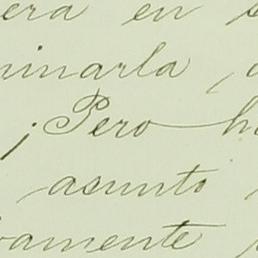 era en s
minarla,
¡Pero h
asunto
vamente